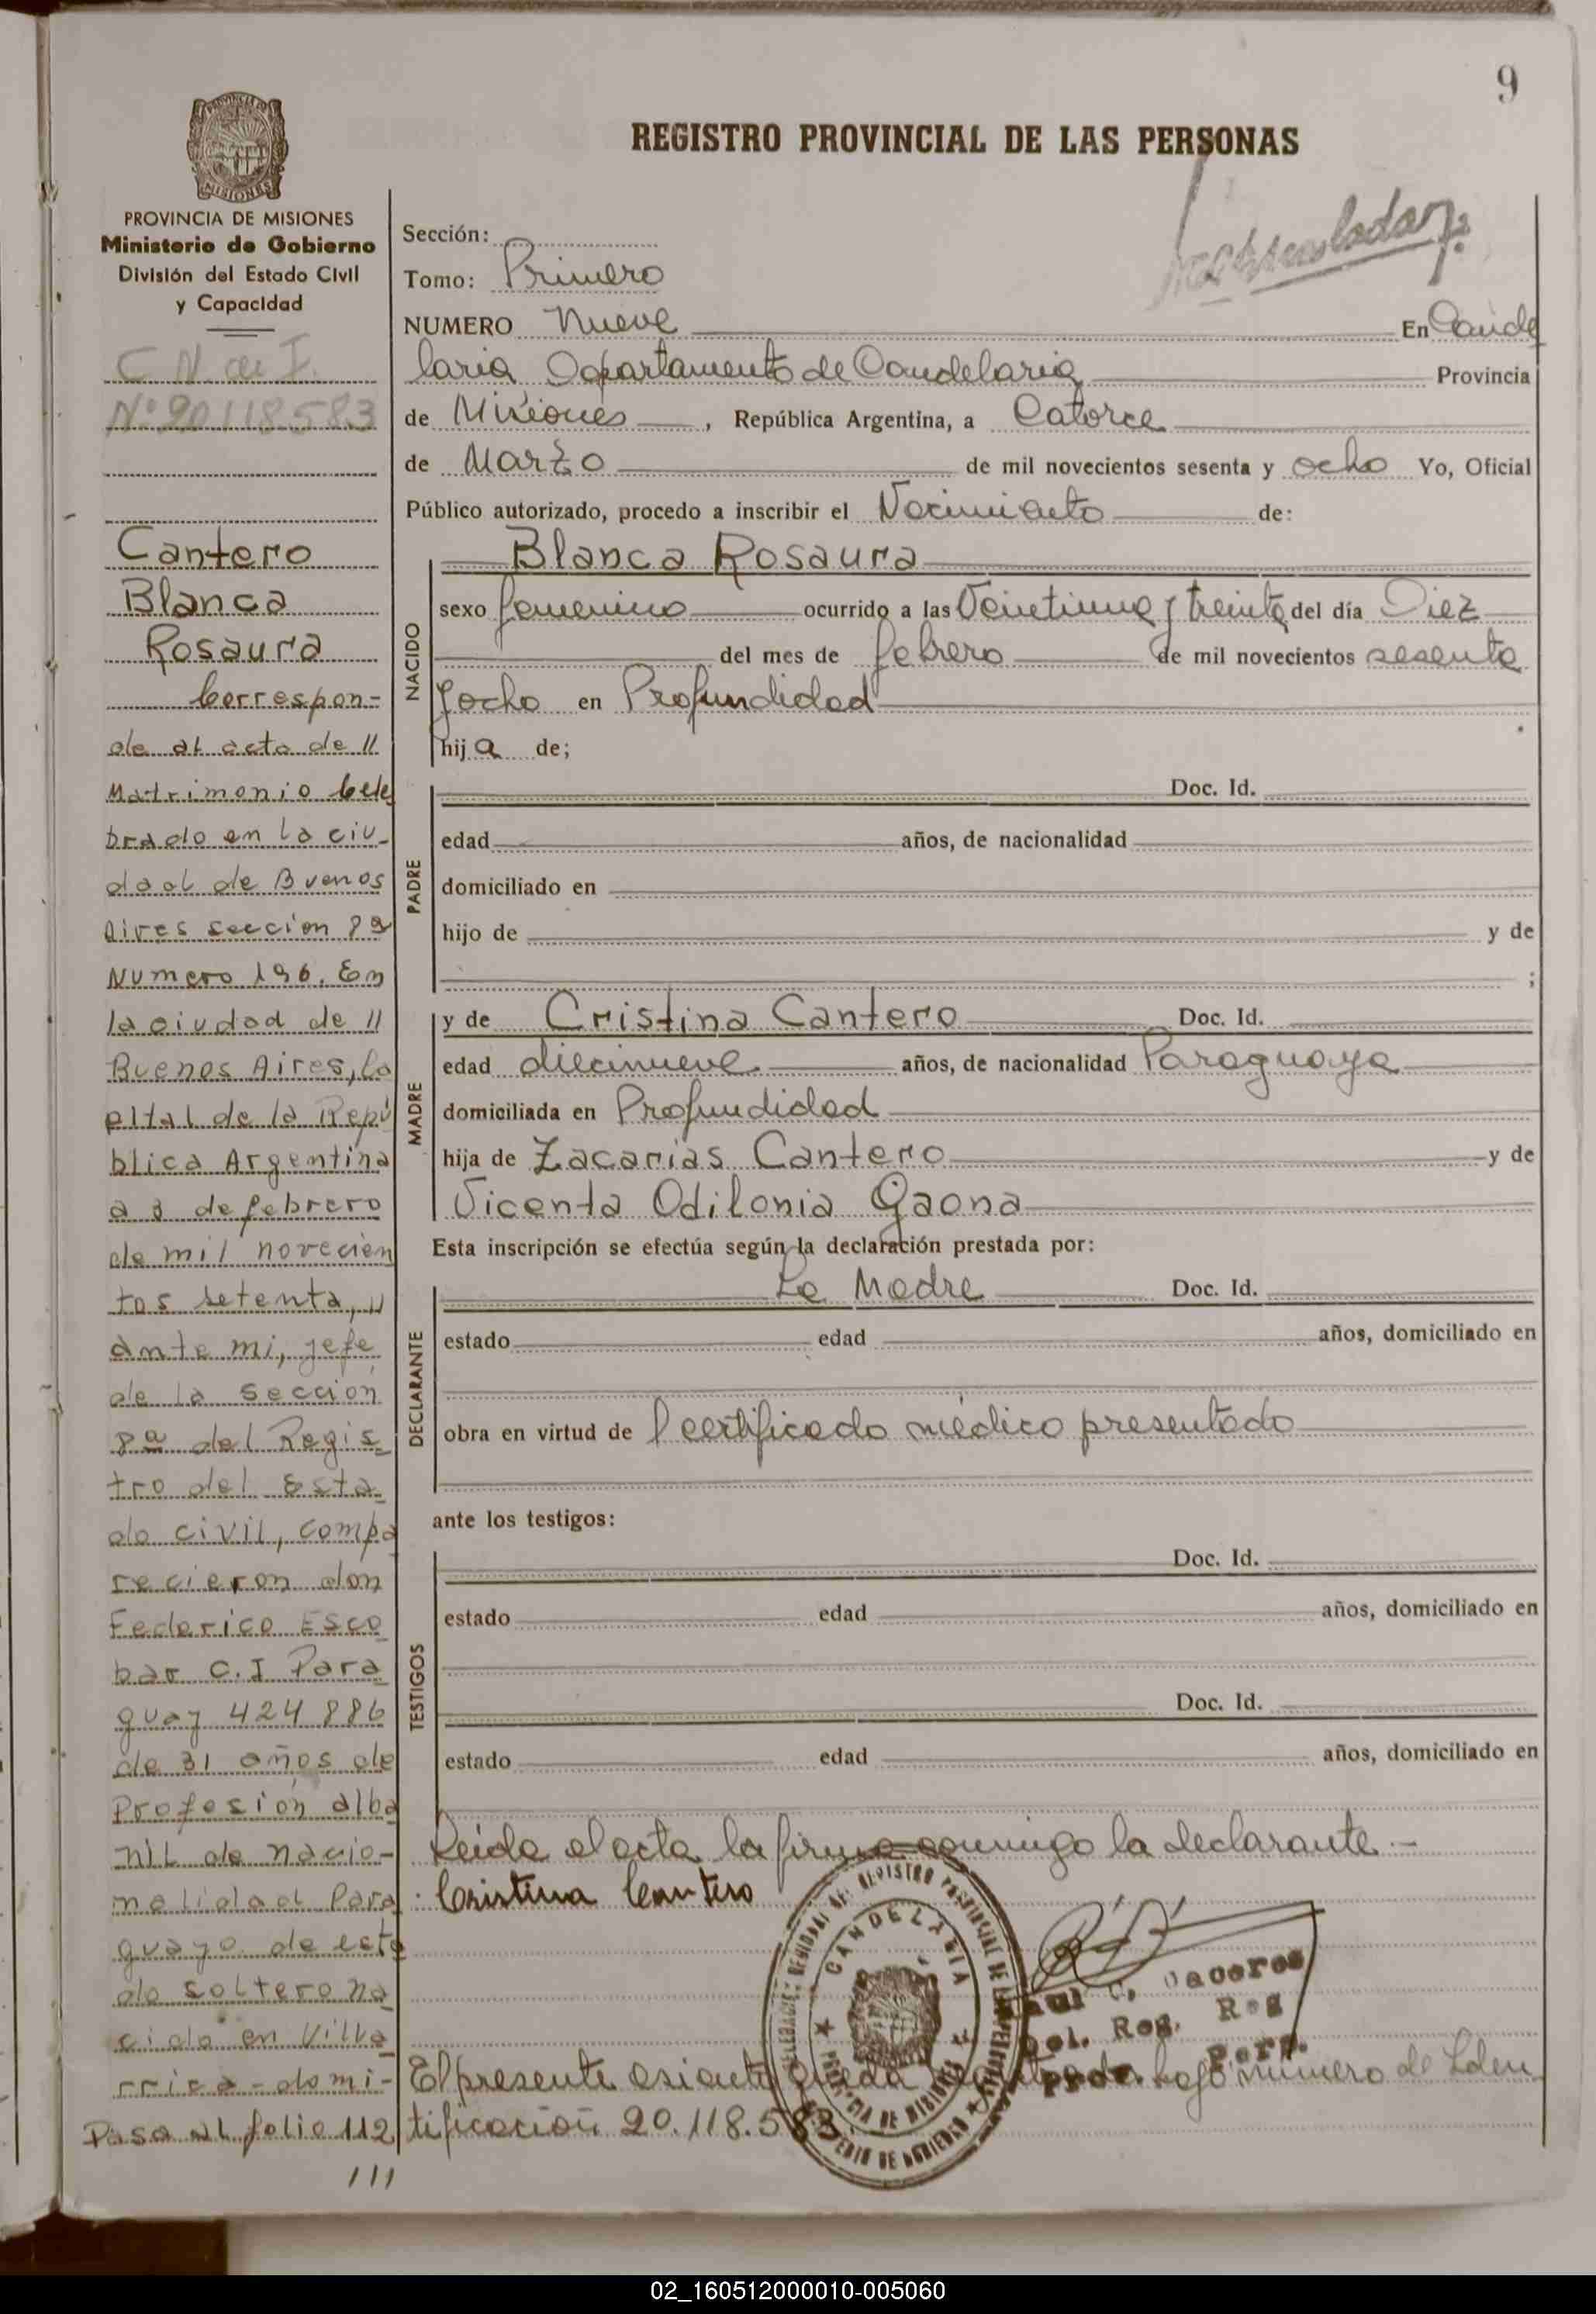 9
REGISTRO PROVINCIAL DE LAS PERSONAS
PROVINCIA DE MISIONES
Ministerio de Gobierno
División del Estado Civil
y Capacidad
C N. de I.
Nº 20118.583
Cantero
Blanca
Rosaura
Correspon-
de al acta de //
Matrimonio Cele
brado en la ciu-
dad de Buenos
Aires sección 8ª
Numero 196. En
la ciudad de //
Buenos Aires, Ca
pital de la Repú
blica Argentina
a 3 de febrero
de mil novecien
tos setenta, //
ante mi, jefe
de la sección
8ª del Regis_
tro del Esta_
do civil, compa
recieron don
Federico Esco_
bar C.I Para_
guay 424886
de 31 años de
Profesión alba
ñil de nacio-
nalidad Para_
guayo de esta
do soltero na_
cido en Villa_
rrica - domi-
Pasa al folio 112
///
Sección:
Tomo: Primero
NUMERO Nueve En Cande
laria Departamento de Candelaria Provincia
de Misiones, República Argentina, a Catorce
de Marzo de mil novecientos sesenta y ocho Yo, Oficial
Público autorizado, procedo a inscribir el Nacimiento de:
NACIDO
Blanca Rosaura
sexo femenino ocurrido a las Veintiuna y treinta del día Diez
del mes de febrero de mil novecientos sesenta
y ocho en Profundidad
hija de;
PADRE
Doc. Id.
edad años, de nacionalidad
domiciliado en
hijo de y de
;
MADRE
y de Cristina Cantero Doc. Id.
edad diecinueve años, de nacionalidad Paraguaya
domiciliada en Profundidad
hija de Zacarias Cantero y de
Vicenta Odilonia Gaona
Esta inscripción se efectúa según la declaración prestada por:
DECLARANTE
La Madre Doc. Id.
estado edad años, domiciliado en
obra en virtud de l certificado médico presentado
ante los testigos:
TESTIGOS
Doc. Id.
estado edad años, domiciliado en
Doc. Id.
estado edad años, domiciliado en
Leida el acta la firma conmigo la declarante.-
Cristina Cantero
CANDELARIA
PROVINCIA DE MISIONES
Raul C, Caceres
Del. Reg. Reg
Prov. Pers.
El presente asiento queda bajo número de Iden
tificación 20.118.583
02_160512000010-005060